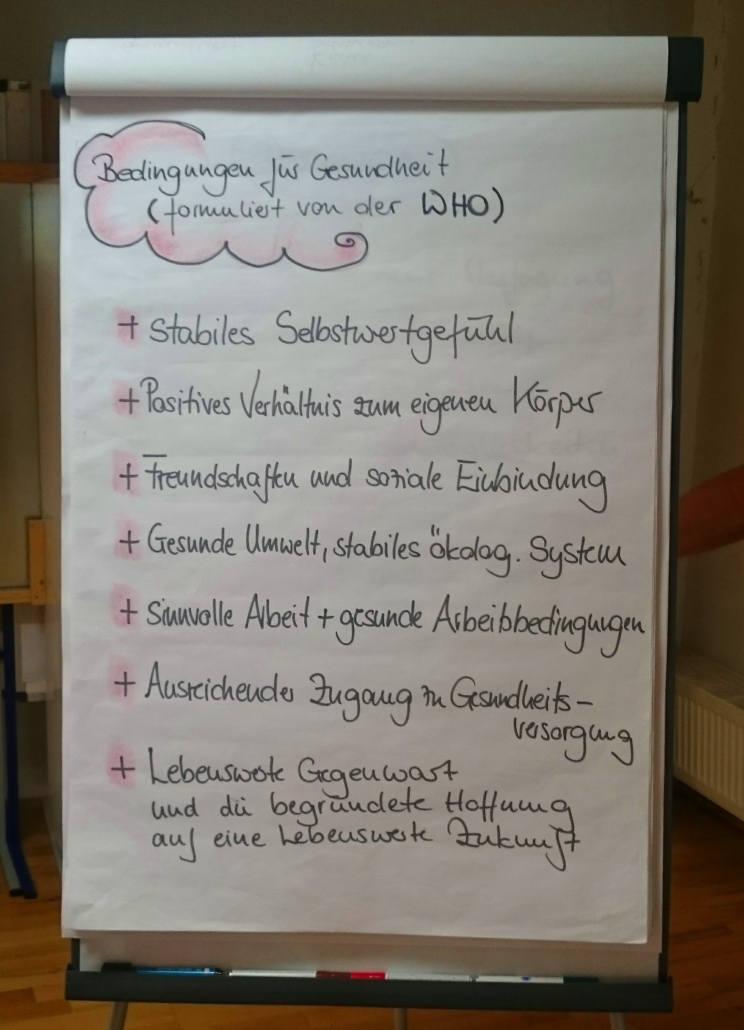 Bedingungen für Gesundheit
(formuliert von der WHO)
+ Stabiles Selbstwertgefühl
+ Positives Verhältnis zum eigenen Körper
+ Freundschaften und soziale Einbindung
+ Gesunde Umwelt, stabiles ökolog. System
+ Sinnvolle Arbeit + gesunde Arbeitsbedingungen
+ Ausreichender Zugang zu Gesundheits-
versorgung
+ Lebenswerte Gegenwart
und die begründete Hoffnung
auf eine lebenswerte Zukunft